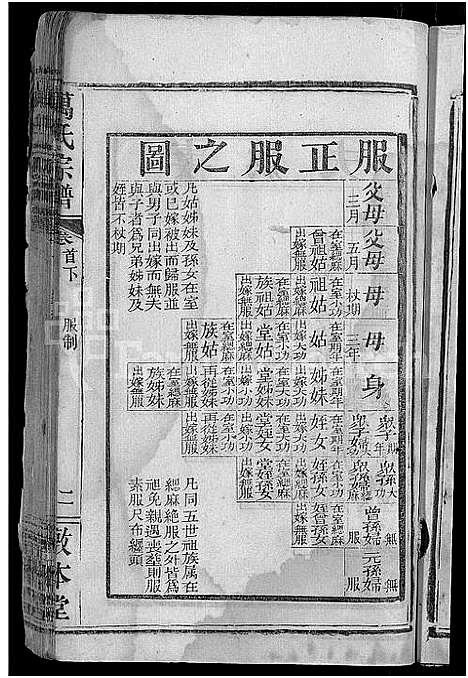 服正服之圖
父母
三月
父母
五月
母
杖期
母
三年
身
眾子婦
眾孫婦
曾孫婦
無服
元孫婦
無服
曾祖姑
在室緦麻
出嫁無服
祖姑
在室小功
出嫁緦麻
族祖姑
在室緦麻
出嫁無服
姑
在室期年
出嫁大功
堂姑
在室小功
出嫁緦麻
族姑
在室緦麻
出嫁無服
姊妹
在室期年
出嫁大功
堂姊妹
在室大功
出嫁小功
再從姊妹
在室小功
出嫁緦麻
族姊妹
在室緦麻
出嫁無服
姪女
在室期年
出嫁大功
堂姪女
在室小功
出嫁緦麻
再從姪女
在室緦麻
出嫁無服
姪孫女
在室小功
出嫁緦麻
堂姪孫女
在室緦麻
出嫁無服
姪曾孫女
在室緦麻
出嫁無服
凡姑姊妹及孫女在室
或已嫁被出而歸服並
與男子同出嫁而無夫
與子者為兄弟姊妹及
姪皆不杖期
凡同五世祖族屬在
緦麻絕服之外皆為
袒免親遇喪塟則服
素服尺布纏頭
萬氏宗譜
卷首下
服制
二
敦本堂